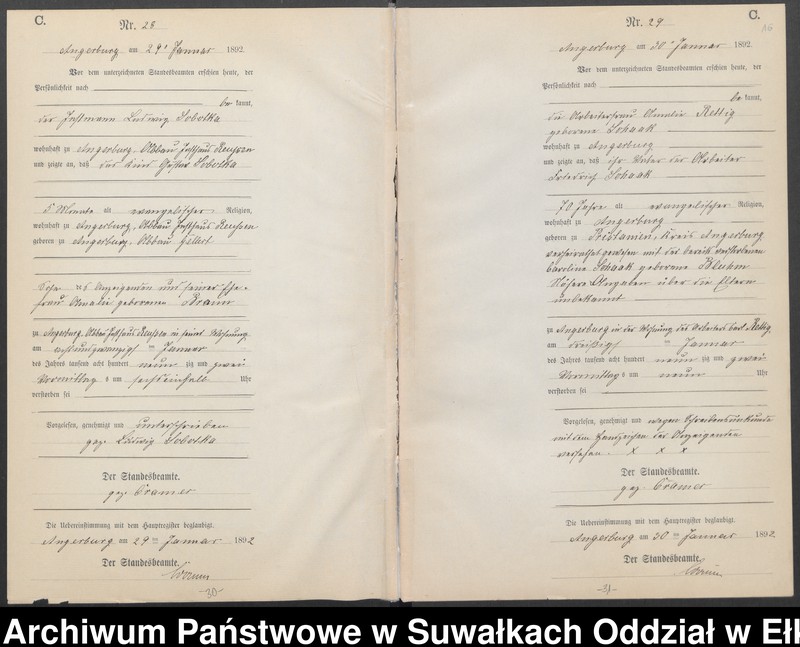 C.
Nr. 28
Angerburg am 29. Januar 1892.
Vor dem unterzeichneten Standesbeamten erschien heute, der
Persönlichkeit nach
be kannt,
der Instmann Ludwig Sobottka
wohnhaft zu Angerburg, Abbau Insthaus Reussen
und zeigte an, daß das Kind Gustav Sobottka
5 Monate alt evangelischer Religion,
wohnhaft zu Angerburg, Abbau Insthaus Reussen
geboren zu Angerburg, Abbau
Sohn des Anzeigenden und seiner Ehe-
frau Amalie geborenen Braun
zu Angerburg, Abbau Insthaus Reussen in seiner Wohnung
am achtundzwanzigsten Januar
des Jahres tausend acht hundert neun zig und zwei
Vormittag s um sechseinhalb Uhr
verstorben sei
Vorgelesen, genehmigt und unterschrieben
gez. Ludwig Sobottka
Der Standesbeamte.
gez. Cramer
Die Uebereinstimmung mit dem Hauptregister beglaubigt.
Angerburg am 29ten Januar 1892
Der Standesbeamte.
-30-
C.
16
Nr. 29
Angerburg am 30. Januar 1892.
Vor dem unterzeichneten Standesbeamten erschien heute, der
Persönlichkeit nach
be kannt,
die Arbeiterfrau Amalie Rettig
geborene Schaak
wohnhaft zu Angerburg
und zeigte an, daß ihr Vater der Arbeiter
Friedrich Schaak
70 Jahre alt evangelischer Religion,
wohnhaft zu Angerburg
geboren zu Pristanien, Kreis Angerburg
verheirathet gewesen mit der bereits verstorbenen
Caroline Schaak geborene Bluhm
Nähere Angaben über die Eltern
unbekannt
zu Angerburg in der Wohnung des Arbeiters Carl Rettig
am dreißigsten Januar
des Jahres tausend acht hundert neun zig und zwei
Vormittag s um neun Uhr
verstorben sei
Vorgelesen, genehmigt und wegen Schreibensunkunde
mit dem Handzeichen der Anzeigenden
versehen. x x x
Der Standesbeamte.
gez. Cramer
Die Uebereinstimmung mit dem Hauptregister beglaubigt.
Angerburg am 30ten Januar 1892
Der Standesbeamte.
-31-
Archiwum Państwowe w Suwałkach Oddział w Ełk